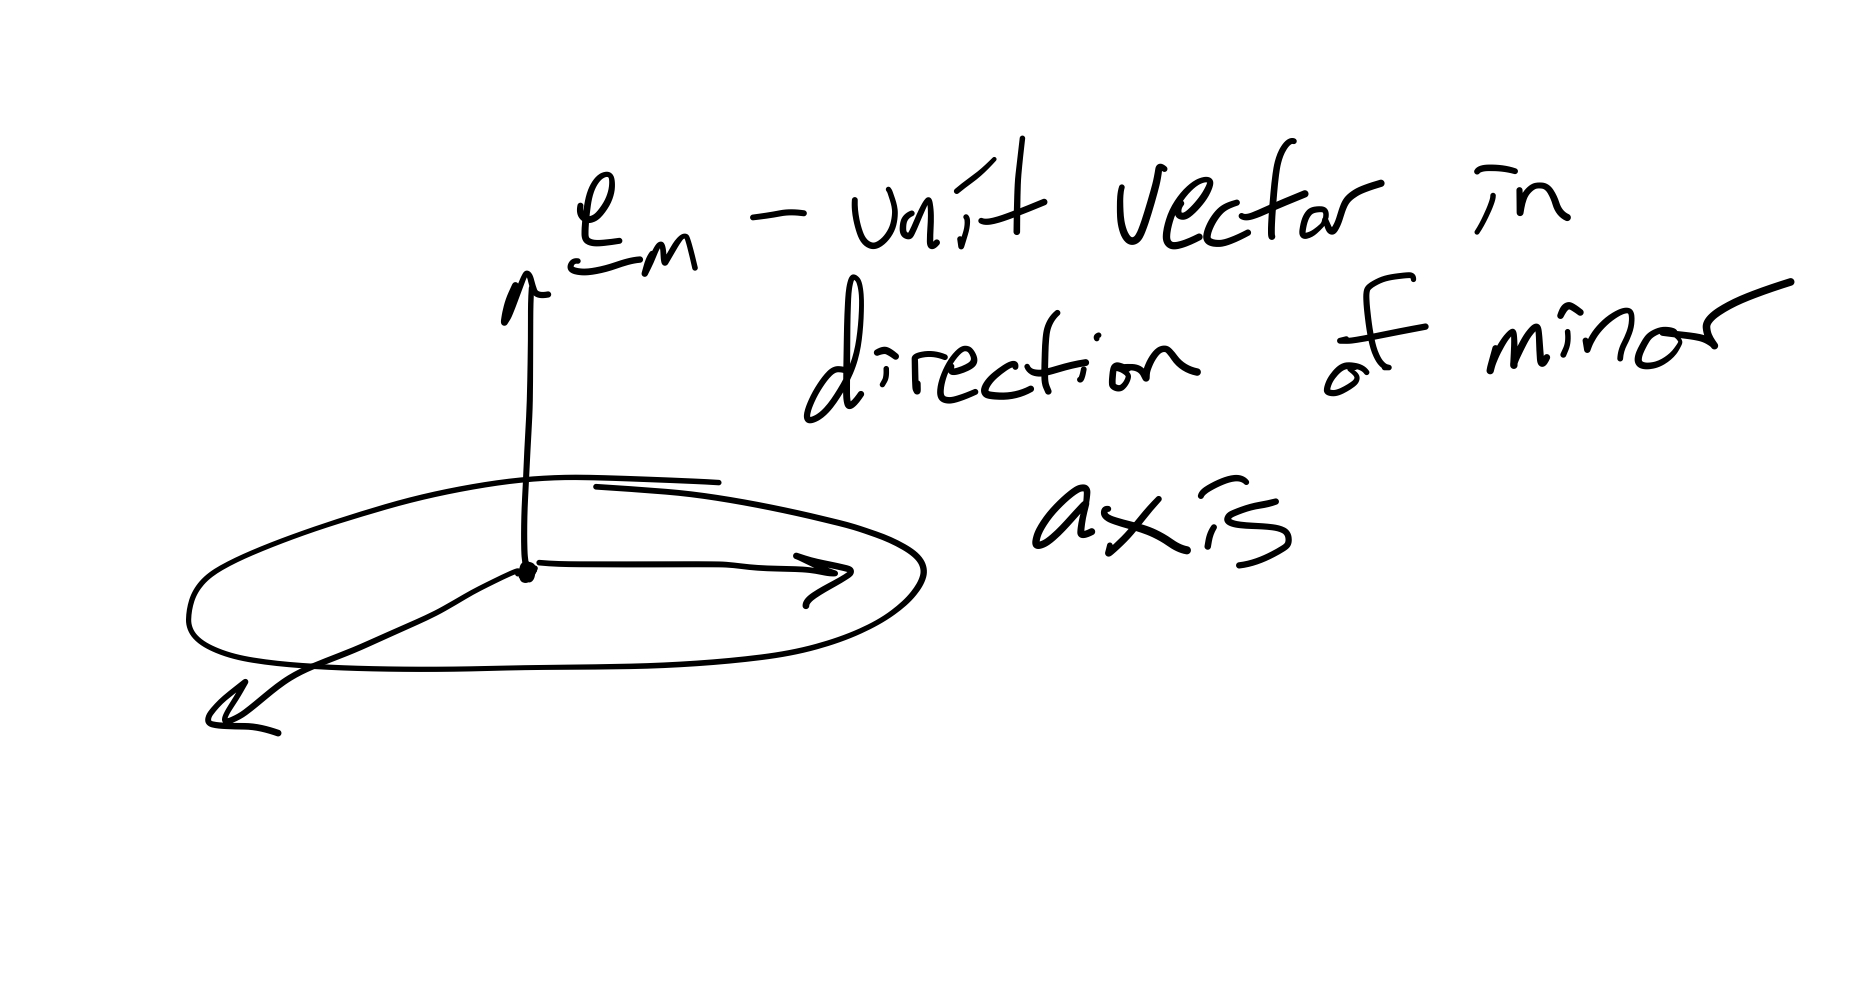 e_m - unit vector in
direction of minor
axis